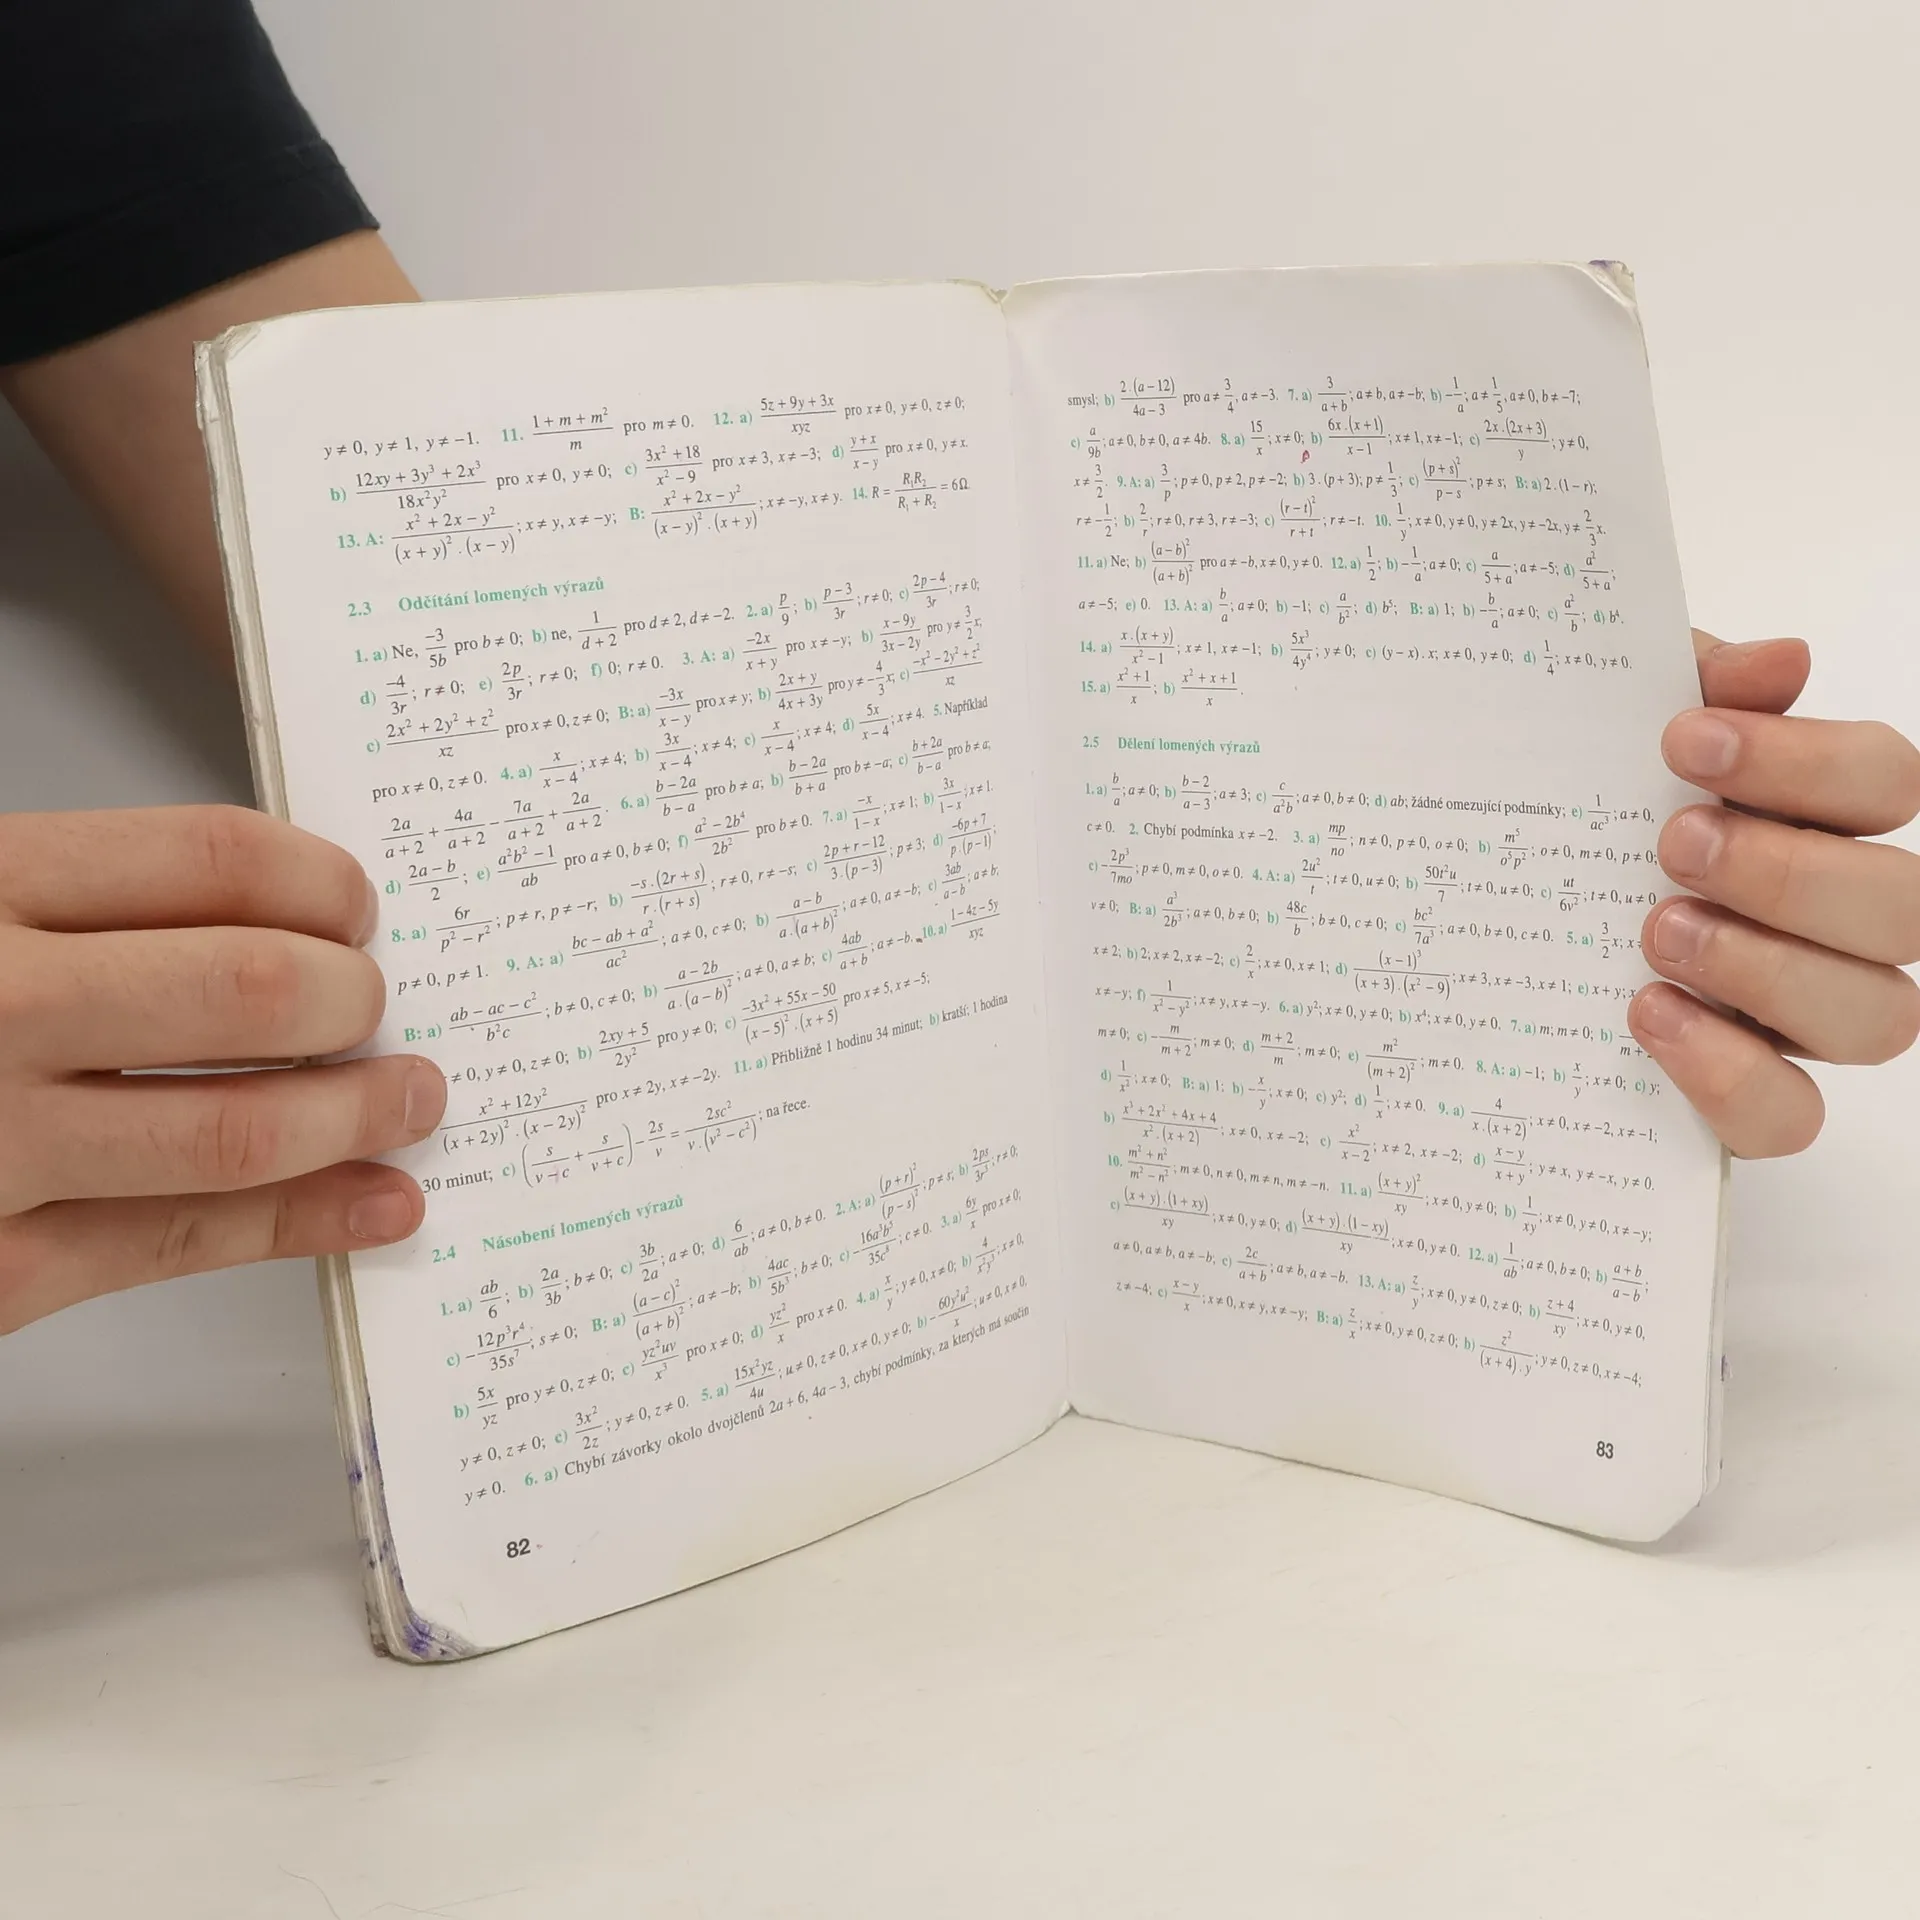 y ≠ 0, y ≠ 1, y ≠ −1. 11. (1 + m + m²)/m pro m ≠ 0. 12. a) (5z + 9y + 3x)/xyz pro x ≠ 0, y ≠ 0, z ≠ 0;
b) (12xy + 3y³ + 2x³)/18x²y² pro x ≠ 0, y ≠ 0; c) (3x² + 18)/(x² − 9) pro x ≠ 3, x ≠ −3; d) (y + x)/(x − y) pro x ≠ 0, y ≠ x.
13. A: (x² + 2x − y²)/((x + y)² . (x − y)); x ≠ y, x ≠ −y; B: (x² + 2x − y²)/((x − y)² . (x + y)); x ≠ −y, x ≠ y. 14. R = R₁R₂/(R₁ + R₂) = 6Ω
2.3 Odčítání lomených výrazů
1. a) Ne, −3/5b pro b ≠ 0; b) ne, 1/(d + 2) pro d ≠ 2, d ≠ −2. 2. a) p/9; b) (p − 3)/3r; r ≠ 0; c) (2p − 4)/3r; r ≠ 0;
d) −4/3r; r ≠ 0; e) 2p/3r; r ≠ 0; f) 0; r ≠ 0. 3. A: a) −2x/(x + y) pro x ≠ −y; b) (x − 9y)/(3x − 2y) pro y ≠ 3/2 x;
c) (2x² + 2y² + z²)/xz pro x ≠ 0, z ≠ 0; B: a) −3x/(x − y) pro x ≠ y; b) (2x + y)/(4x + 3y) pro y ≠ −4/3 x; c) (−x² − 2y² + z²)/xz
pro x ≠ 0, z ≠ 0. 4. a) x/(x − 4); x ≠ 4; b) 3x/(x − 4); x ≠ 4; c) x/(x − 4); x ≠ 4; d) 5x/(x − 4); x ≠ 4. 5. Například
2a/(a + 2) + 4a/(a + 2) − 7a/(a + 2) + 2a/(a + 2). 6. a) (b − 2a)/(b − a) pro b ≠ a; b) (b − 2a)/(b + a) pro b ≠ −a; c) (b + 2a)/(b − a) pro b ≠ a;
d) (2a − b)/2; e) (a²b² − 1)/ab pro a ≠ 0, b ≠ 0; f) (a² − 2b⁴)/2b² pro b ≠ 0. 7. a) −x/(1 − x); x ≠ 1; b) 3x/(1 − x); x ≠ 1.
8. a) 6r/(p² − r²); p ≠ r, p ≠ −r; b) −s . (2r + s)/(r . (r + s)); r ≠ 0, r ≠ −s; c) (2p + r − 12)/(3 . (p − 3)); p ≠ 3; d) (−6p + 7)/(p . (p − 1));
p ≠ 0, p ≠ 1. 9. A: a) (bc − ab + a²)/ac²; a ≠ 0, c ≠ 0; b) (a − b)/(a . (a + b)²); a ≠ 0, a ≠ −b; c) 3ab/(a − b); a ≠ b;
B: a) (ab − ac − c²)/b²c; b ≠ 0, c ≠ 0; b) (a − 2b)/(a . (a − b)²); a ≠ 0, a ≠ b; c) 4ab/(a + b); a ≠ −b. 10. a) (1 − 4z − 5y)/xyz
≠ 0, y ≠ 0, z ≠ 0; b) (2xy + 5)/2y² pro y ≠ 0; c) (−3x² + 55x − 50)/((x − 5)² . (x + 5)) pro x ≠ 5, x ≠ −5;
(x² + 12y²)/((x + 2y)² . (x − 2y)²) pro x ≠ 2y, x ≠ −2y. 11. a) Přibližně 1 hodinu 34 minut; b) kratší; 1 hodina
30 minut; c) (s/(v − c) + s/(v + c)) − 2s/v = 2sc²/(v . (v² − c²)); na řece.
2.4 Násobení lomených výrazů
1. a) ab/6; b) 2a/3b; b ≠ 0; c) 3b/2a; a ≠ 0; d) 6/ab; a ≠ 0, b ≠ 0. 2. A: a) (p + r)²/(p − s)²; p ≠ s; b) 2ps/3r³; r ≠ 0;
c) −12p³r⁴/35s⁷; s ≠ 0; B: a) (a − c)²/(a + b)²; a ≠ −b; b) 4ac/5b³; b ≠ 0; c) −16a³b⁵/35c⁸; c ≠ 0. 3. a) 6y/x pro x ≠ 0;
b) 5x/yz pro y ≠ 0, z ≠ 0; c) yz²uv/x³ pro x ≠ 0; d) yz²/x pro x ≠ 0. 4. a) x/y; y ≠ 0, x ≠ 0; b) 4/x²y³; x ≠ 0,
y ≠ 0, z ≠ 0; c) 3x²/2z; y ≠ 0, z ≠ 0. 5. a) 15x²yz/4u; u ≠ 0, z ≠ 0, x ≠ 0, y ≠ 0; b) −60y²u²/x; u ≠ 0, x ≠ 0,
y ≠ 0. 6. a) Chybí závorky okolo dvojčlenů 2a + 6, 4a − 3, chybí podmínky, za kterých má součin
82
smysl; b) 2 . (a − 12)/(4a − 3) pro a ≠ 3/4, a ≠ −3. 7. a) 3/(a + b); a ≠ b, a ≠ −b; b) −1/a; a ≠ 1/5, a ≠ 0, b ≠ −7;
c) a/9b; a ≠ 0, b ≠ 0, a ≠ 4b. 8. a) 15/x; x ≠ 0; b) 6x . (x + 1)/(x − 1); x ≠ 1, x ≠ −1; c) 2x . (2x + 3)/y; y ≠ 0,
x ≠ 3/2. 9. A: a) 3/p; p ≠ 0, p ≠ 2, p ≠ −2; b) 3 . (p + 3); p ≠ 1/3; c) (p + s)²/(p − s); p ≠ s; B: a) 2 . (1 − r);
r ≠ −1/2; b) 2/r; r ≠ 0, r ≠ 3, r ≠ −3; c) (r − t)²/(r + t); r ≠ −t. 10. 1/y; x ≠ 0, y ≠ 0, y ≠ 2x, y ≠ −2x, y ≠ 2/3 x.
11. a) Ne; b) (a − b)²/(a + b)² pro a ≠ −b, x ≠ 0, y ≠ 0. 12. a) 1/2; b) −1/a; a ≠ 0; c) a/(5 + a); a ≠ −5; d) a²/(5 + a);
a ≠ −5; e) 0. 13. A: a) b/a; a ≠ 0; b) −1; c) a/b²; d) b⁵; B: a) 1; b) −b/a; a ≠ 0; c) a²/b; d) b⁴.
14. a) x . (x + y)/(x² − 1); x ≠ 1, x ≠ −1; b) 5x³/4y⁴; y ≠ 0; c) (y − x) . x; x ≠ 0, y ≠ 0; d) 1/4; x ≠ 0, y ≠ 0.
15. a) (x² + 1)/x; b) (x² + x + 1)/x.
2.5 Dělení lomených výrazů
1. a) b/a; a ≠ 0; b) (b − 2)/(a − 3); a ≠ 3; c) c/a²b; a ≠ 0, b ≠ 0; d) ab; žádné omezující podmínky; e) 1/ac³; a ≠ 0,
c ≠ 0. 2. Chybí podmínka x ≠ −2. 3. a) mp/no; n ≠ 0, p ≠ 0, o ≠ 0; b) m⁵/o⁵p²; o ≠ 0, m ≠ 0, p ≠ 0;
c) −2p³/7mo; p ≠ 0, m ≠ 0, o ≠ 0. 4. A: a) 2u²/t; t ≠ 0, u ≠ 0; b) 50t²u/7; t ≠ 0, u ≠ 0; c) ut/6v²; t ≠ 0, u ≠ 0
v ≠ 0; B: a) a³/2b³; a ≠ 0, b ≠ 0; b) 48c/b; b ≠ 0, c ≠ 0; c) bc²/7a³; a ≠ 0, b ≠ 0, c ≠ 0. 5. a) 3/2 x; x
x ≠ 2; b) 2; x ≠ 2, x ≠ −2; c) 2/x; x ≠ 0, x ≠ 1; d) (x − 1)³/((x + 3) . (x² − 9)); x ≠ 3, x ≠ −3, x ≠ 1; e) x + y; x
x ≠ −y; f) 1/(x² − y²); x ≠ y, x ≠ −y. 6. a) y²; x ≠ 0, y ≠ 0; b) x⁴; x ≠ 0, y ≠ 0. 7. a) m; m ≠ 0; b)
m ≠ 0; c) −m/(m + 2); m ≠ 0; d) (m + 2)/m; m ≠ 0; e) m²/(m + 2)²; m ≠ 0. 8. A: a) −1; b) x/y; x ≠ 0; c) y;
d) 1/x²; x ≠ 0; B: a) 1; b) −x/y; x ≠ 0; c) y²; d) 1/x; x ≠ 0. 9. a) 4/(x . (x + 2)); x ≠ 0, x ≠ −2, x ≠ −1;
b) (x³ + 2x² + 4x + 4)/(x² . (x + 2)); x ≠ 0, x ≠ −2; c) x²/(x − 2); x ≠ 2, x ≠ −2; d) (x − y)/(x + y); y ≠ x, y ≠ −x, y ≠ 0.
10. (m² + n²)/(m² − n²); m ≠ 0, n ≠ 0, m ≠ n, m ≠ −n. 11. a) (x + y)²/xy; x ≠ 0, y ≠ 0; b) 1/xy; x ≠ 0, y ≠ 0, x ≠ −y;
c) (x + y) . (1 + xy)/xy; x ≠ 0, y ≠ 0; d) (x + y) . (1 − xy)/xy; x ≠ 0, y ≠ 0. 12. a) 1/ab; a ≠ 0, b ≠ 0; b) (a + b)/(a − b);
a ≠ 0, a ≠ b, a ≠ −b; c) 2c/(a + b); a ≠ b, a ≠ −b. 13. A: a) z/y; x ≠ 0, y ≠ 0, z ≠ 0; b) (z + 4)/xy; x ≠ 0, y ≠ 0,
z ≠ −4; c) (x − y)/x; x ≠ 0, x ≠ y, x ≠ −y; B: a) z/x; x ≠ 0, y ≠ 0, z ≠ 0; b) z²/((x + 4) . y); y ≠ 0, z ≠ 0, x ≠ −4;
83